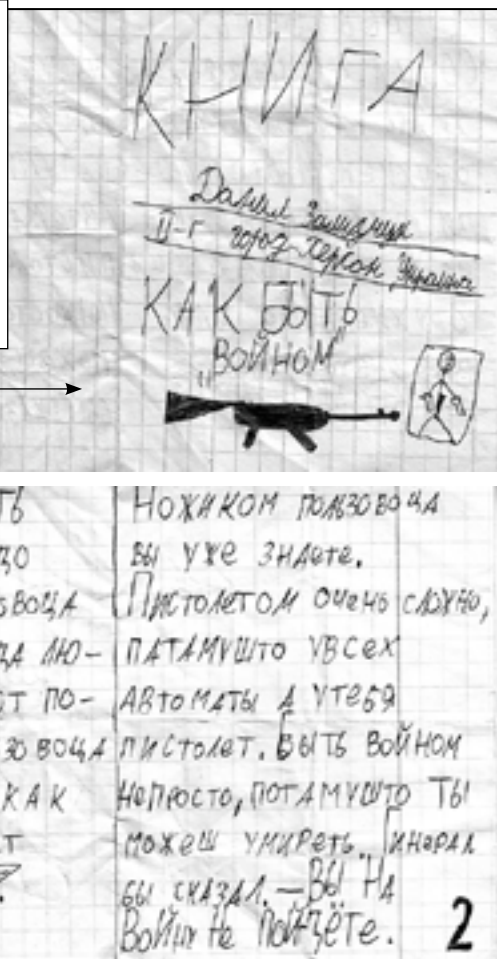 КНИГА
Данил
II-г город Херсон, Украина
КАК БЫТЬ
„ВОЙНОМ"
ТЬ
ЗОВОЦА
ДА ЛЮ-
ЗОВОЦА
КАК
НОЖИКОМ ПОЛЬЗОВОЦА
ВЫ УЖЕ ЗНАЕТЕ.
ПИСТОЛЕТОМ ОЧЕНЬ СЛОЖНО,
ПАТАМУШТО УВСЕХ
АВТОМАТЫ А УТЕБЯ
ПИСТОЛЕТ. БЫТЬ ВОЙНОМ
НЕПРОСТО, ПОТАМУШТО ТЫ
МОЖЕШ УМИРЕТЬ. ГИНЕРАЛ
БЫ СКАЗАЛ. — ВЫ НА
ВОЙНУ НЕ ПОЙДЁТЕ.
2